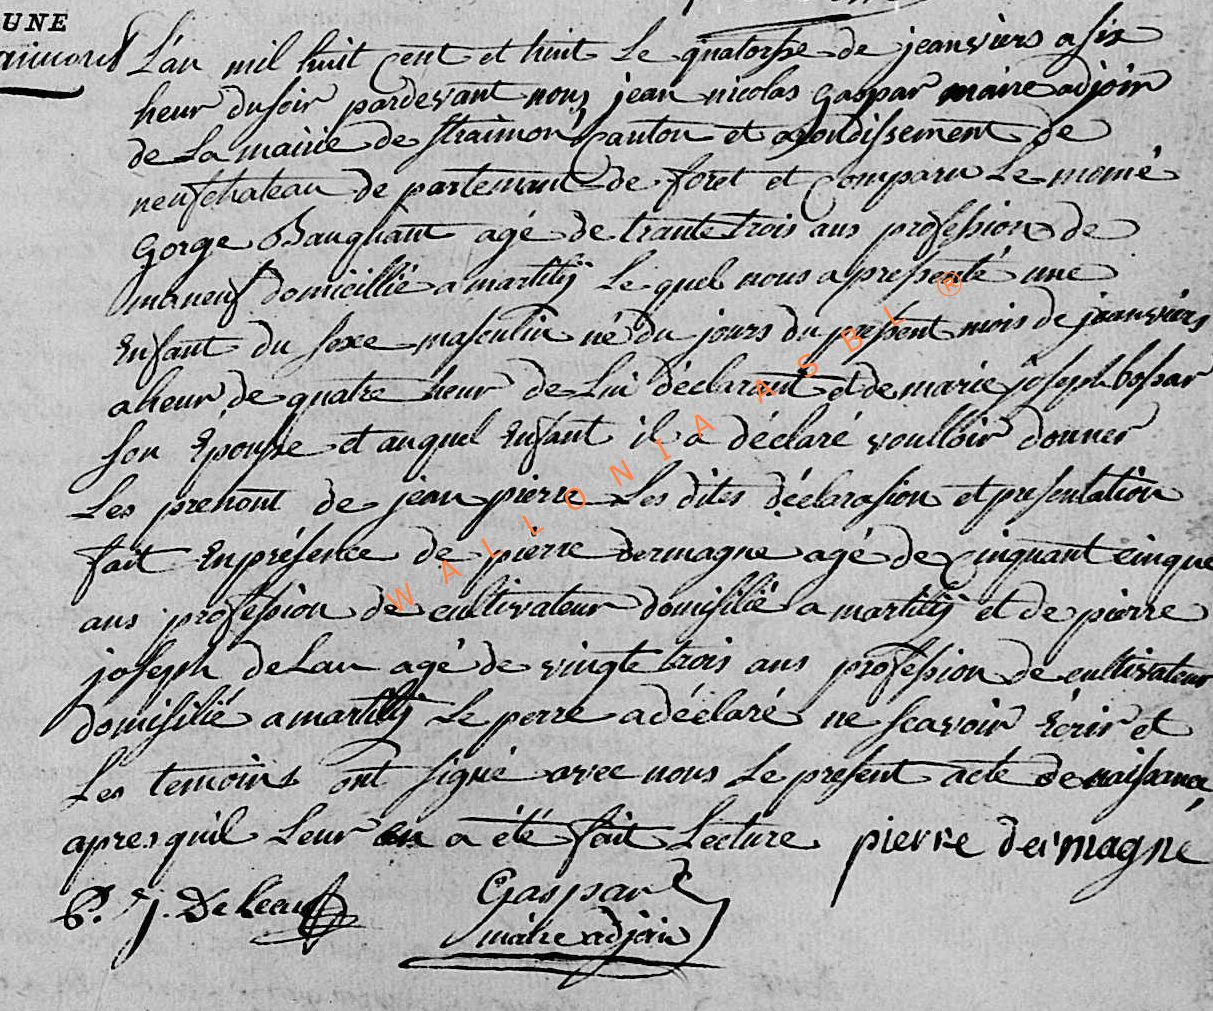 UNE
L'an mil huit cent et huit Le quatorse de jeanviers a six
heur du soir pardevant nous jean nicolas Gaspar maire adjoin
de La mairie de straimon canton et arondissement de
neufchateau de partemant de foret et Comparu Le memé
Gorge Bauquant agé de trante trois ans profession de
maneuf domicillié a martilÿ Le quel nous a pressenté une
Enfant du sexe masculin né du jours du pressent mois de jeanviers
a heur de quatre heur de Lui déclarant et de marie joseph bossar
son Epousse et auquel Enfant il a déclaré voulloir donner
Les prenont de jean pierre Les dites déclarasion et presentation
fait En présence de pierre dermagne agé de cinquant cinque
ans profession de cultivateur domisilié a martilÿ et de pierre
joseph deLau agé de vingte trois ans profession de cultivateur
domisilié a martilÿ Le perre a déclaré ne scavoir Ecrir et
Les temoins ont signé avec nous Le present acte de naissance
apres quil Leur en a été fait Lecture pierre dermagne
P. J. DeLeau
Gaspar
maire adjoin
WALLONIA ASBL ®